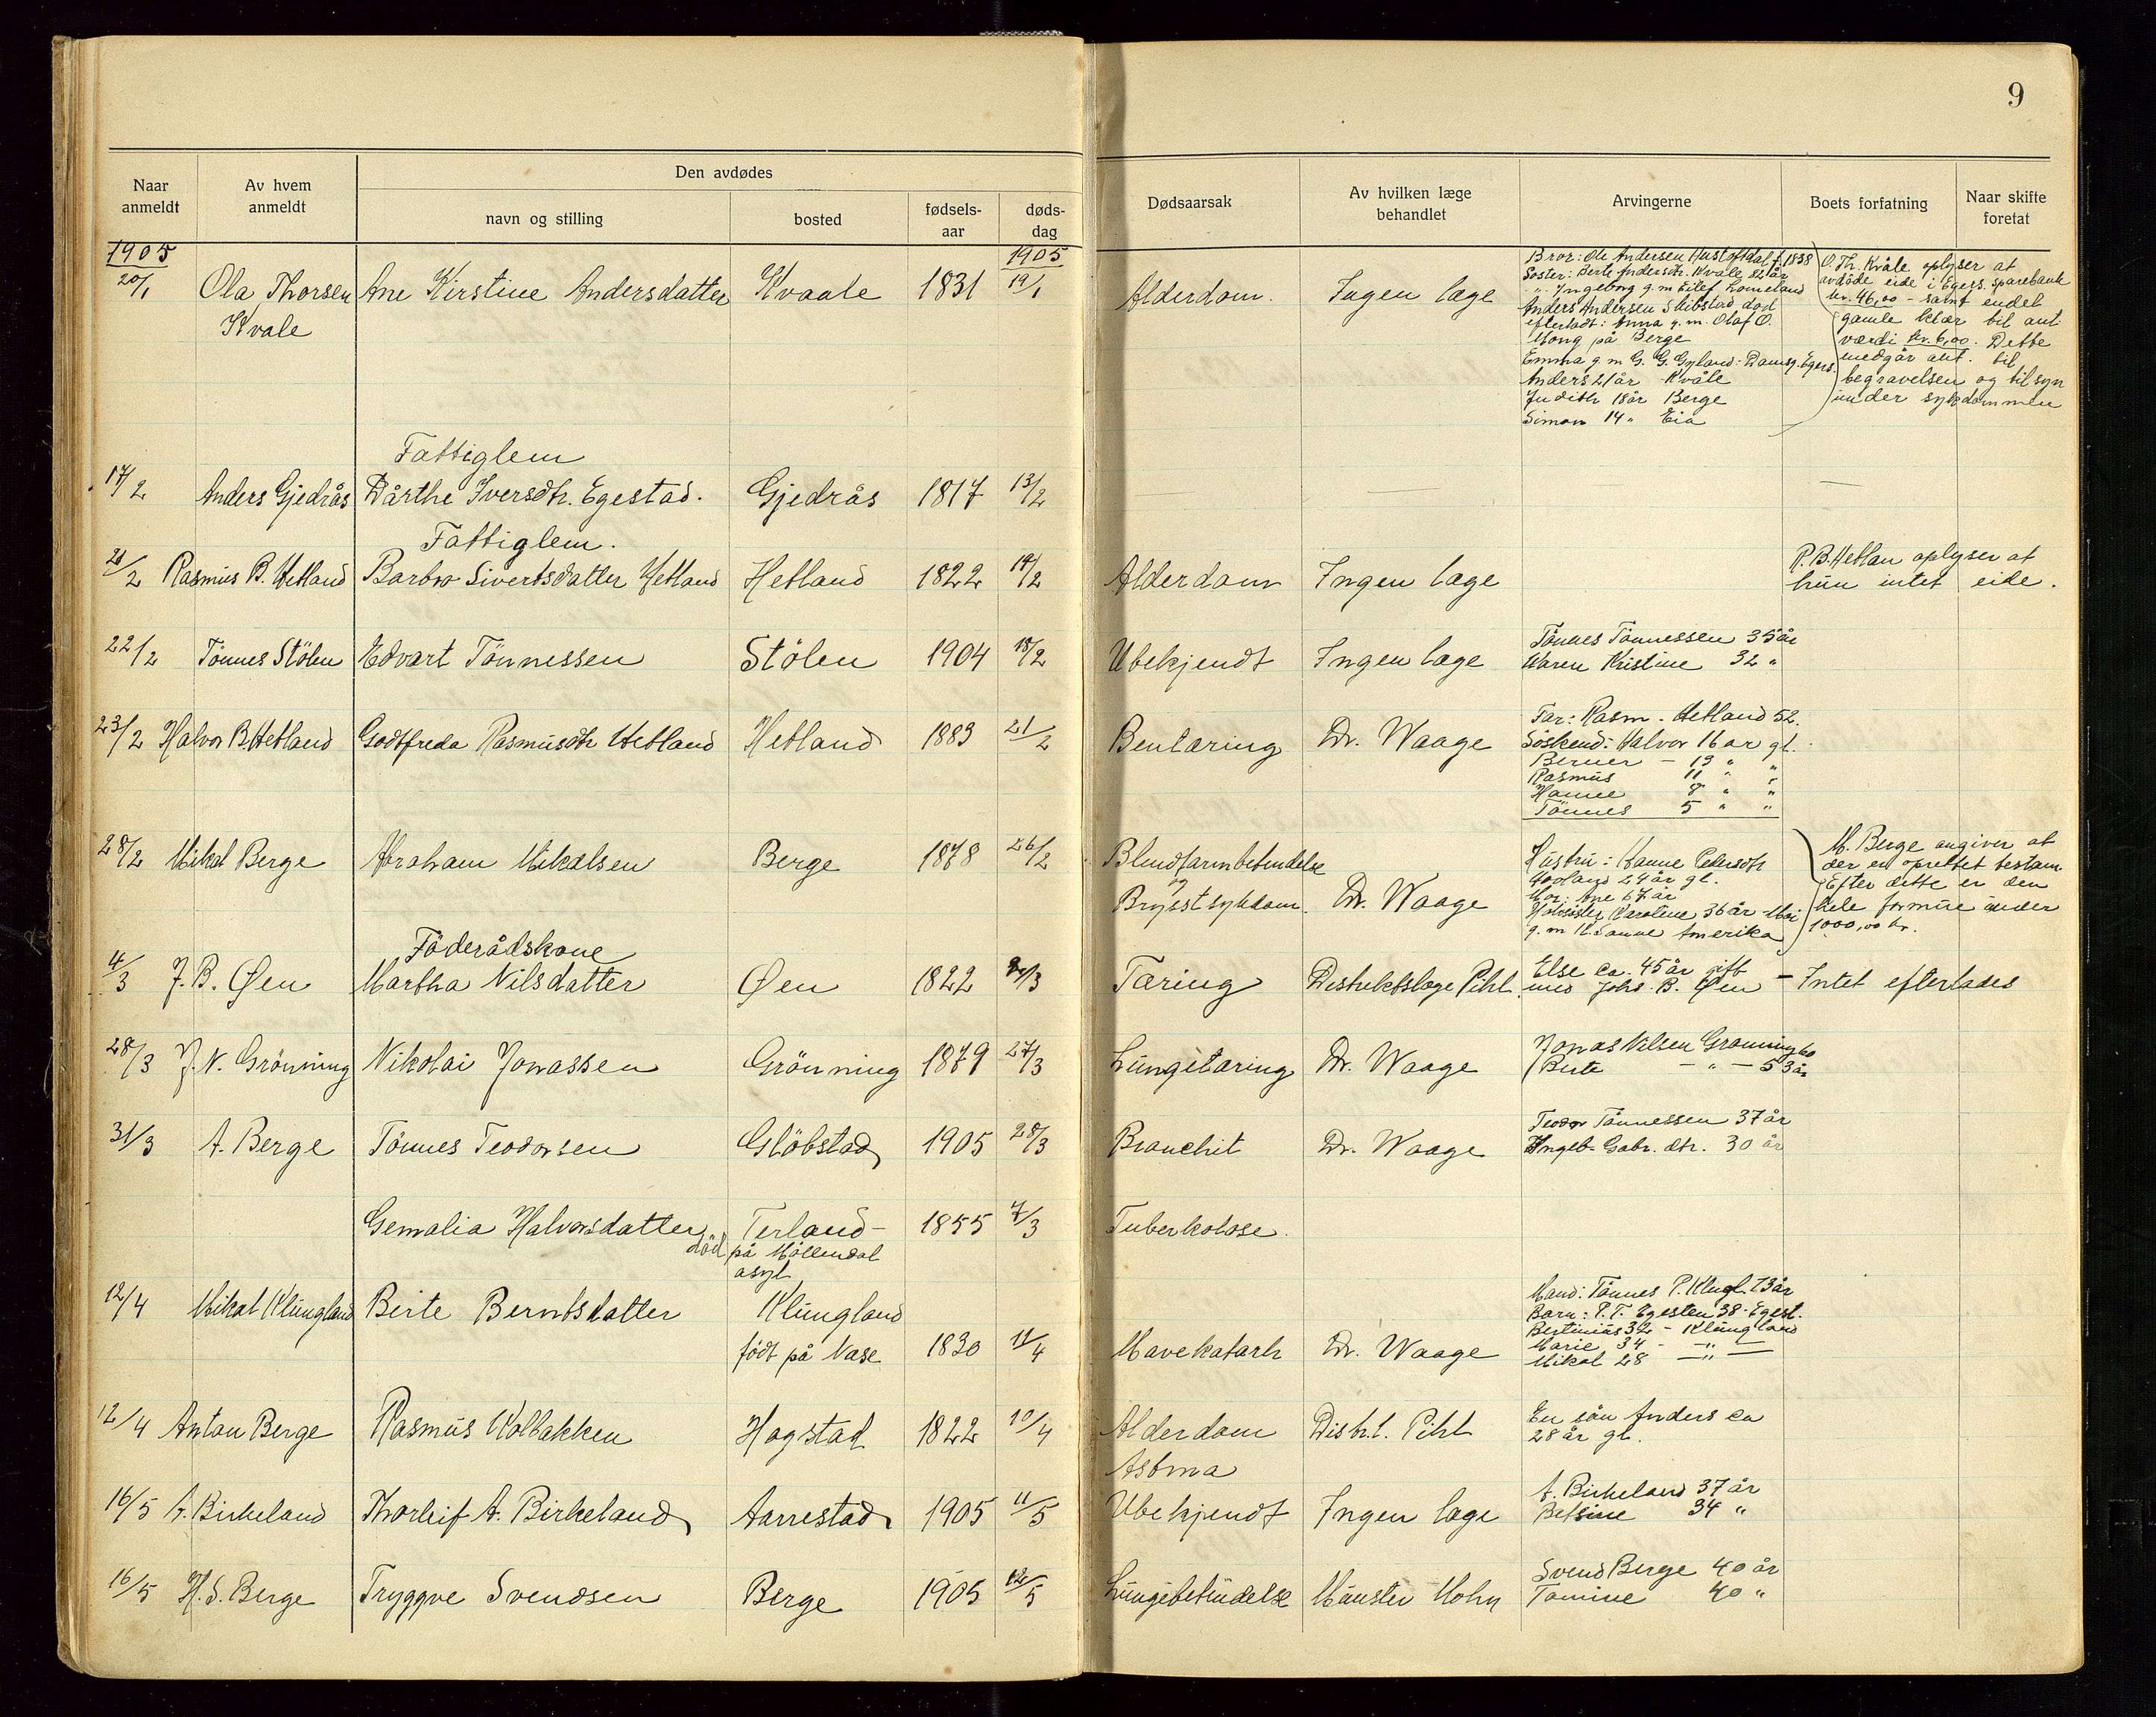 9
Naar anmeldt
Av hvem anmeldt
Den avdødes
navn og stilling
bosted
fødsels-aar
døds-dag
Dødsaarsak
Av hvilken læge behandlet
Arvingerne
Boets forfatning
Naar skifte foretat
1905
1905
20/1 Ola Thorsen Kvale Ane Kirstine Andersdatter Kvaale 1831 19/1 Alderdom. Ingen læge
Bror: Ole Andersen Hustoftdal f. 1838
Søster: Berte Andersdtr. Kvåle 82 år
" " Ingeborg g.m Eilef Lomeland
Anders Andersen Skibstad død
efterladt: Anna g.m. Olaf O.
Mong på Berge
Emma g m G. G. Gyland: Damsg. Egers.
Anders 21 år Kvåle
Judith 18 år Berge
Simon 14 " Eia
O. Th. Kvåle oplyser at
avdöde eide i Egers. Sparebank
kr. 46,00 - samt endel
gamle klær til ant.
værdi kr. 6,00. Dette
medgår ant. til
begravelsen og tilsyn
under sykdommen
Fattiglem
17/2 Anders Gjedrås Dårthe Iversdtr. Egestad. Gjedrås 1817 13/2 — — —
Fattiglem.
21/2 Rasmus B. Hetland Barbro Sivertsdatter Hetland Hetland 1822 19/2 Alderdom Ingen læge
R. B. Hetlan oplyser at
hun intet eide.
22/2 Tönnes Stölen Edvart Tönnessen Stölen 1904 18/2 Ubekjendt Ingen læge
Tönnes Tönnessen 35 år
Maren Kristine 32 "
23/2 Halvor B Hetland Godtfreda Rasmusdtr Hetland Hetland 1883 21/2 Bentæring Dr. Waage
Far: Rasm. Hetland 52.
Söskend: Halvor 16 år gl.
Berner — 13 " "
Rasmus 11 " "
Hanne 8 " "
Tönnes 5 " "
28/2 Mikal Berge Abraham Mikalsen Berge 1878 26/2
Blindtarmbetændelse
og
Brystsykdom. Dr. Waage
Hustru: Hanne Pedersdtr
24 år gl.
Mor: Ane 67 år
Halvsöster Karoline 36 år
g. m Amerika
M. Berge angiver at
der er oprettet testam.
Efter dette er den
hele formue under
1000,00 kr.
Föderådskone
4/3 J. B. Øen Martha Nilsdatter Øen 1822 /3 Tæring Destriktslæge Pihl.
Else ca. 45 år gift
med Johs. B. Øen
— Intet efterlades
28/3 J. N. Grönning Nikolai Jonassen Grönning 1879 27/3 Lungetæring Dr. Waage
Jonas Nilsen Grönning 60
Berte — " — 53 år
31/3 A. Berge Tönnes Teodorsen Glöbstad 1905 28/3 Bronchit Dr. Waage
Teodor Tönnessen 37 år
Ingeb. Gabr. dtr. 30 år
Gemalia Halvorsdatter Terland- 1855 7/3 Tuberkolose.
död på Möllendal
asyl
12/4 Mikal Klungland Berte Berntsdatter Klungland
födt på Nase 1830 11/4 Mavekatarh Dr. Waage
Mand: Tönnes P. Klugl. 73 år
Barn: P. T. Egesten 38 - Egest.
Bertinius 32 - Klungland
Marie 34 - — " —
Mikal 28 — " —
12/4 Anton Berge Rasmus Kolbakken Hogstad 1822 10/4 Alderdom Distr.l. Pihl
Astma
En sön Anders ca
28 år gl.
16/5 A. Birkeland Thorleif A. Birkeland Aarrestad 1905 11/5 Ubekjendt Ingen læge
A. Birkeland 37 år
Betsine 34 "
16/5 H. S. Berge Tryggve Svendsen Berge 1905 12/5 Lungebetendelse Münster Mohn
Svend Berge 40 år
Tomine 40 "